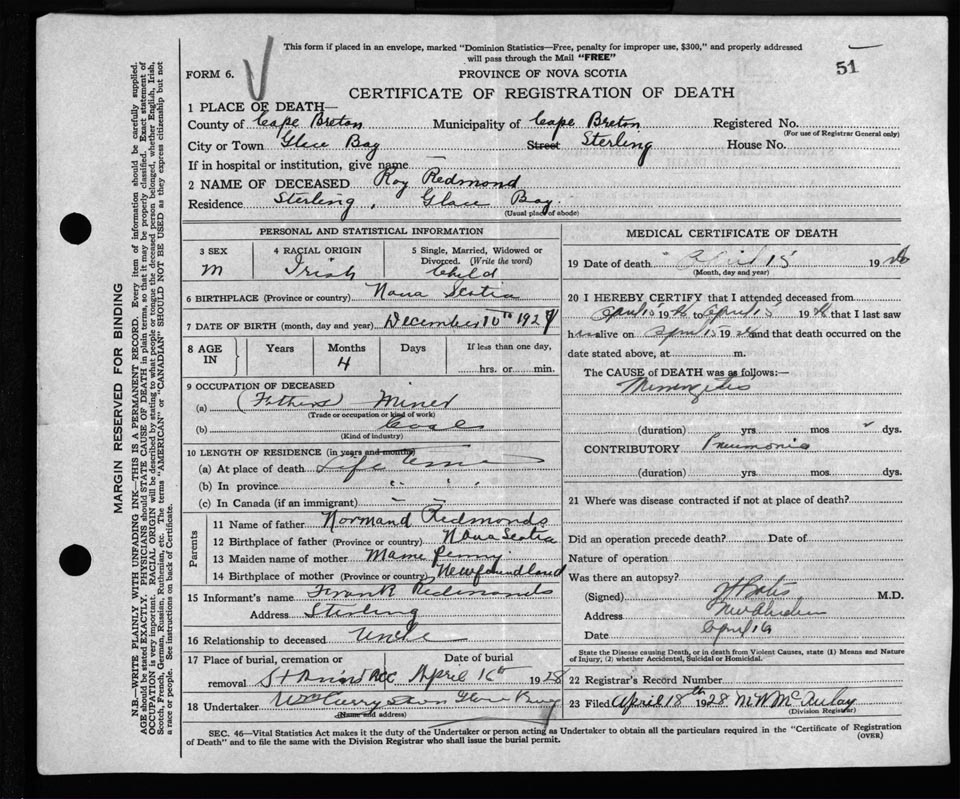 This form if placed in an envelope, marked "Dominion Statistics—Free, penalty for improper use, $300," and properly addressed
will pass through the Mail "FREE"
51
FORM 6.
PROVINCE OF NOVA SCOTIA
CERTIFICATE OF REGISTRATION OF DEATH
1 PLACE OF DEATH—
County of Cape Breton Municipality of Cape Breton Registered No.
(For use of Registrar General only)
City or Town Glace Bay Street Sterling House No.
If in hospital or institution, give name —
2 NAME OF DECEASED Roy Redmond
Residence Sterling, Glace Bay.
(Usual place of abode)
PERSONAL AND STATISTICAL INFORMATION
3 SEX 4 RACIAL ORIGIN 5 Single, Married, Widowed or
Divorced. (Write the word)
M Irish Child
6 BIRTHPLACE (Province or country) Nova Scotia
7 DATE OF BIRTH (month, day and year) December 10th 1927
8 AGE IN Years Months Days If less than one day,
4 hrs. or min.
9 OCCUPATION OF DECEASED
(a) (Fathers) Miner
(Trade or occupation or kind of work)
(b) Coal
(Kind of industry)
10 LENGTH OF RESIDENCE (in years and months)
(a) At place of death Life time
(b) In province " " "
(c) In Canada (if an immigrant) — —
Parents
11 Name of father Normand Redmonds
12 Birthplace of father (Province or country) Nova Scotia
13 Maiden name of mother Mame Penny
14 Birthplace of mother (Province or country) Newfoundland
15 Informant's name Frank Redmonds
Address Sterling
16 Relationship to deceased Uncle
17 Place of burial, cremation or Date of burial
removal St April 16th 1928
18 Undertaker Glace Bay
(Name and address)
MEDICAL CERTIFICATE OF DEATH
19 Date of death April 15 1928
(Month, day and year)
20 I HEREBY CERTIFY that I attended deceased from
April 15 1928 to April 15 1928 that I last saw
h alive on April 15 1928 and that death occurred on
date stated above, at m.
The CAUSE of DEATH was as follows:—
Meningitis
(duration) yrs mos dys.
CONTRIBUTORY Pneumonia
(duration) yrs. mos. dys.
21 Where was disease contracted if not at place of death?
Did an operation precede death? Date of
Nature of operation
Was there an autopsy?
(Signed) M.D.
Address New Aberdeen
Date April 16
State the Disease causing Death, or in death from Violent Causes, state (1) Means and Nature
of Injury, (2) whether Accidental, Suicidal or Homicidal.
22 Registrar's Record Number
23 Filed April 18th 1928 McAulay
(Division Registrar)
SEC. 46—Vital Statistics Act makes it the duty of the Undertaker or person acting as Undertaker to obtain all the particulars required in the "Certificate of Registration
of Death" and to file the same with the Division Registrar who shall issue the burial permit.
(OVER)
MARGIN RESERVED FOR BINDING
N.B.—WRITE PLAINLY WITH UNFADING INK—THIS IS A PERMANENT RECORD. Every item of information should be carefully supplied.
AGE should be stated EXACTLY. PHYSICIANS should STATE CAUSE OF DEATH in plain terms, so that it may be properly classified. Exact statement of
OCCUPATION is very important. RACIAL ORIGIN will be described by stating to what people or tongue the deceased person belonged, whether English, Irish,
Scotch, French, German, Russian, Ruthenian, etc. The terms "AMERICAN" or "CANADIAN" SHOULD NOT BE USED as they express citizenship but not
a race or people. See instructions on back of Certificate.